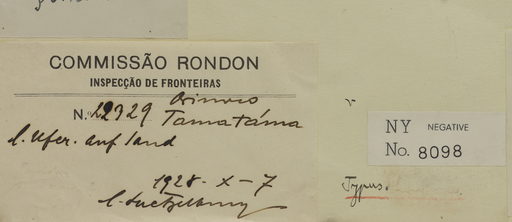 COMMISSÃO RONDON
INSPECÇÃO DE FRONTEIRAS
Orinoco
N. 22329 Tamatáma
l. Ufer. auf land
1928 - X - 7
NY NEGATIVE
No. 8098
Typus.